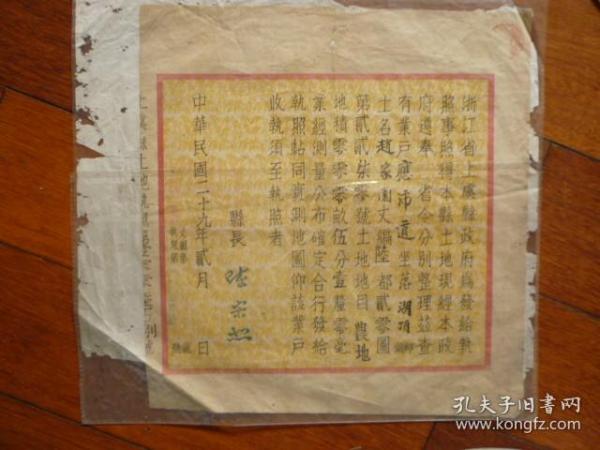 浙江省上虞縣政府爲發給執
照事照得本縣土地現經本政
府遵奉 省令分別整理茲查
有業戶應沛道坐落湖頂
土名趙家園丈編陸都貳零圖
第貳貳柒零號土地地目農地
地積零零零畝伍分壹釐零毫
業經測量公布確定合行發給
執照帖同實測地圖仰該業戶
收執須至執照者
縣長
中華民國二十九年貳月 日
孔夫子旧书网
www.kongfz.com